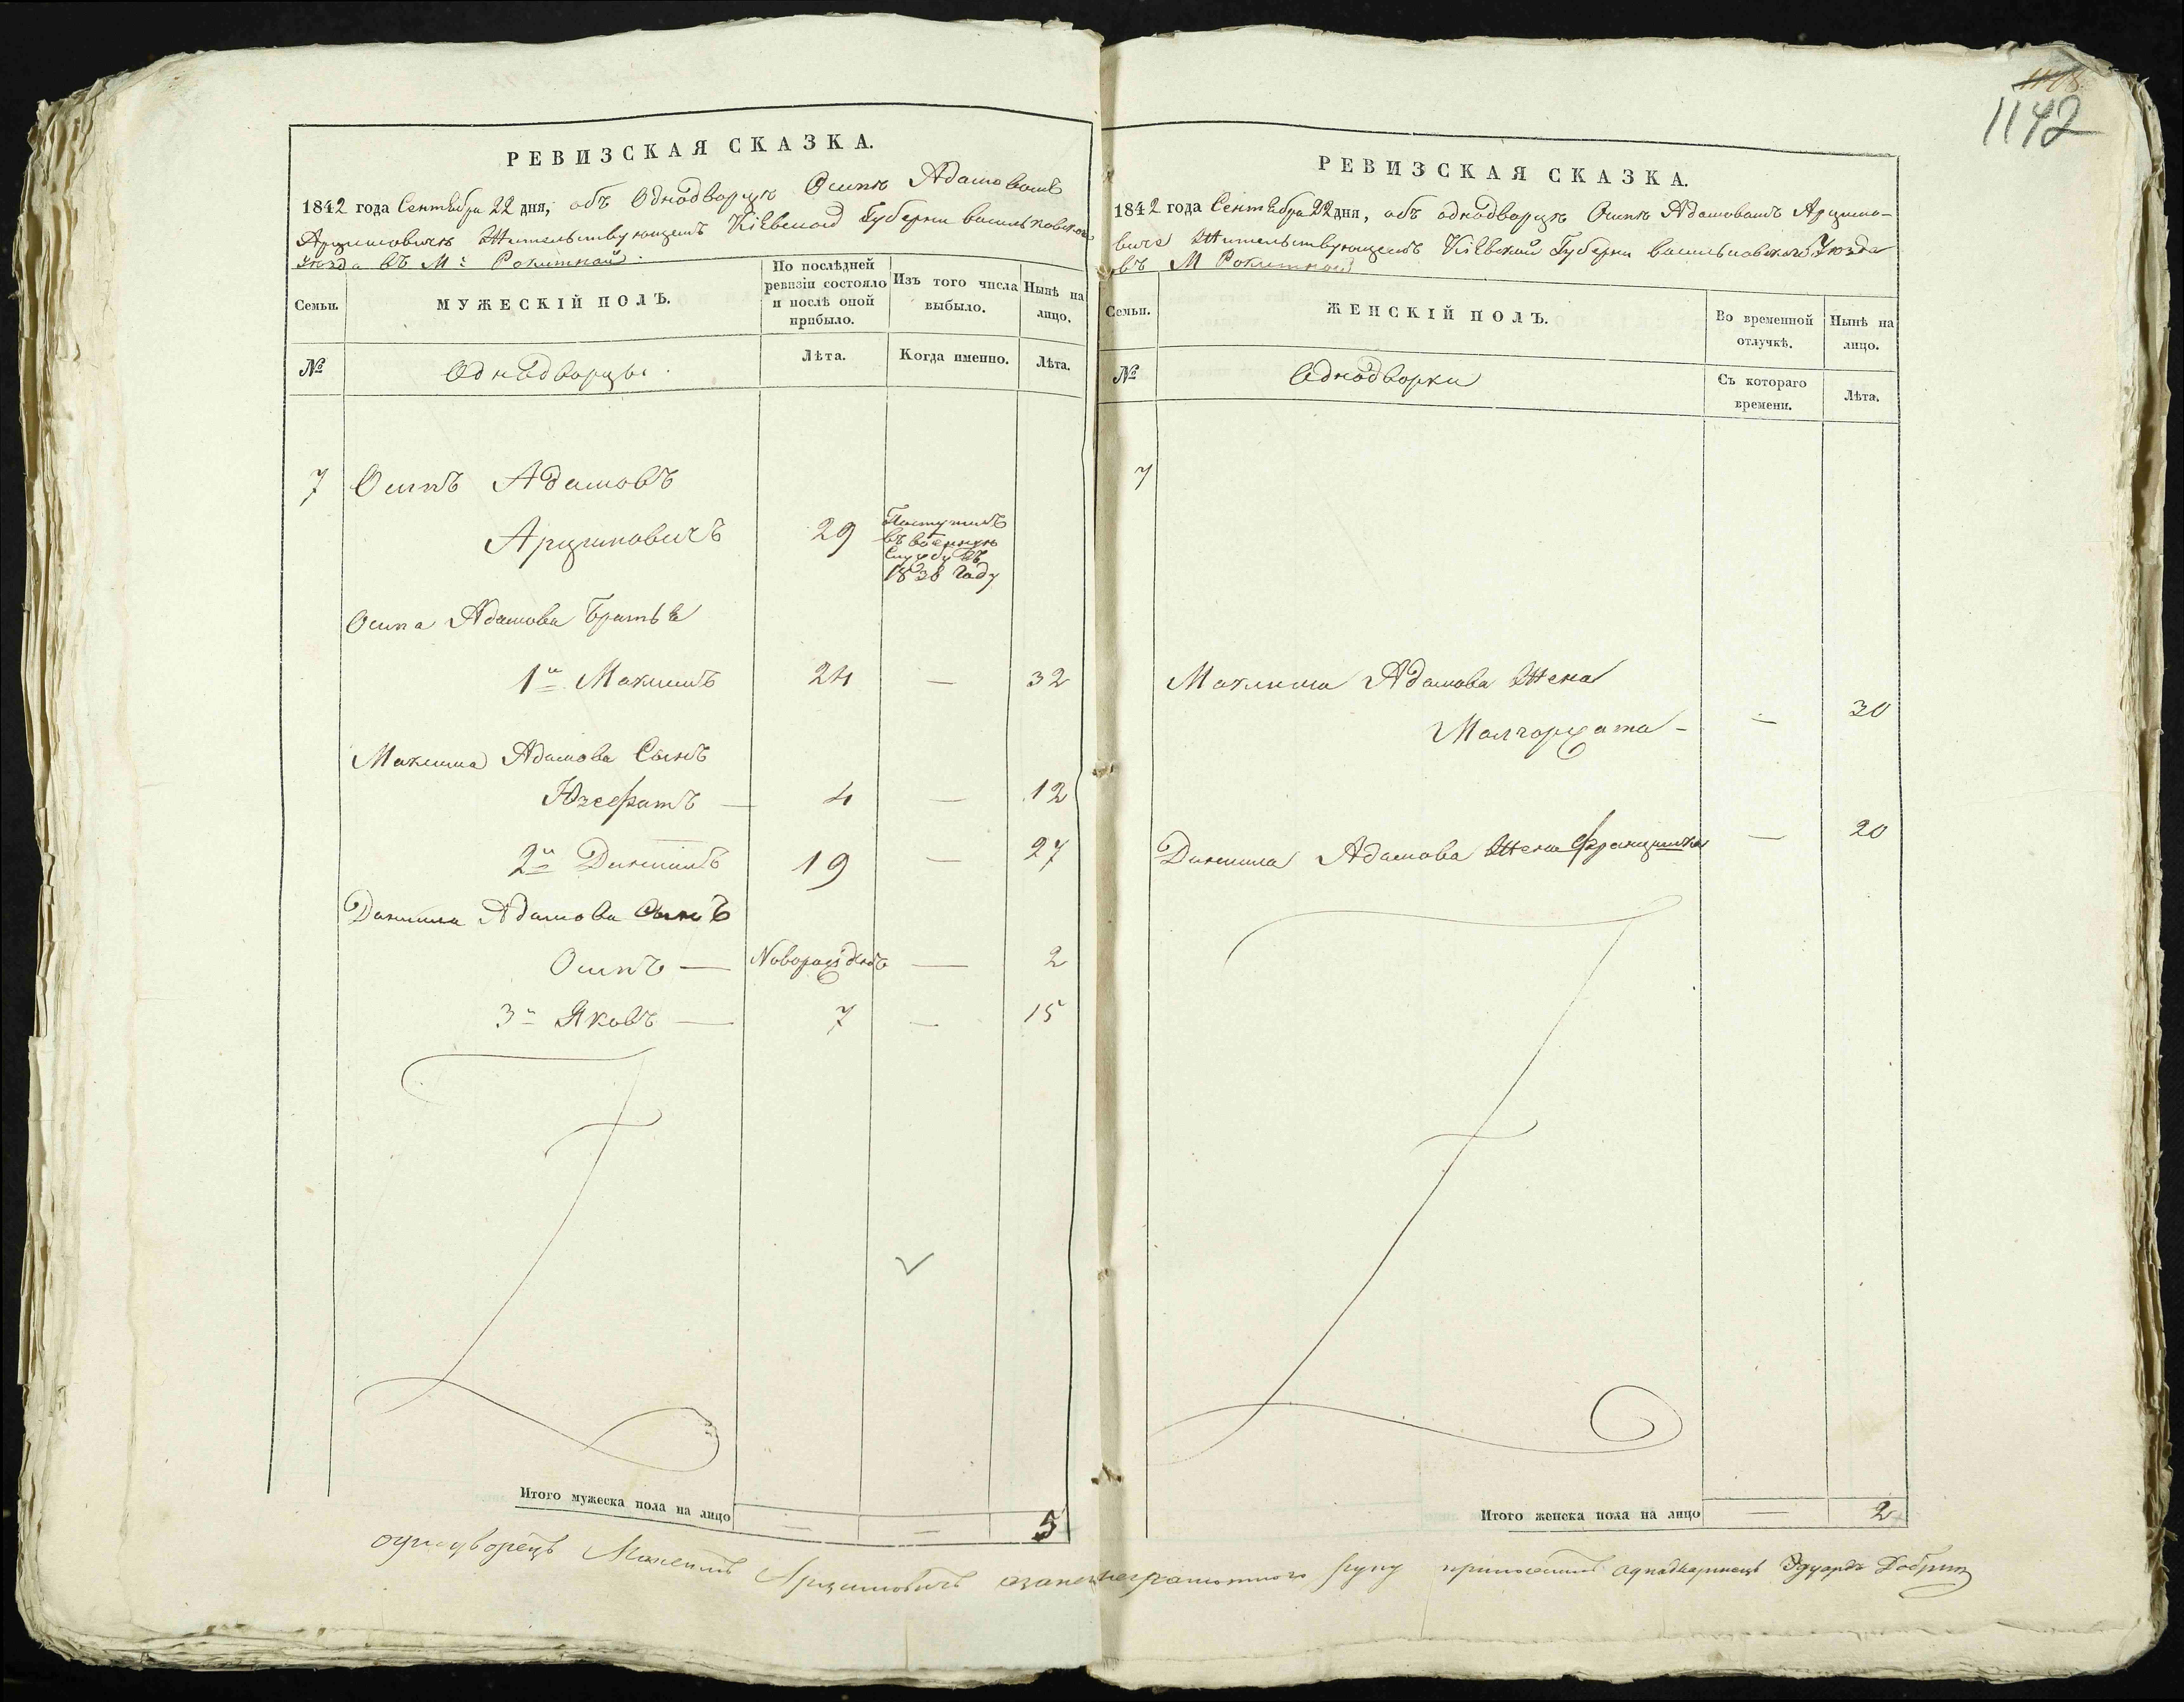 РЕВИЗСКАЯ СКАЗКА.
1842 года Сентября 22 дня, объ Однодворцѣ Осипѣ Адамовомъ
Арцимовичѣ Жительствующемъ Кіевской Губерни Васильковского
Уѣзда въ М: Рокитной
Семьи.
МУЖЕСКІЙ ПОЛЪ.
По послѣдней
ревизіи состояло
и послѣ оной
прибыло.
Изъ того числа
выбыло.
Нынѣ на
лицо.
№
Однодворцы.
Лѣта.
Когда именно.
Лѣта.
7 Осипъ Адамовъ
Арцимовичъ 29
Поступилъ
въ военную
Службу въ
1838 Году
Осипа Адамова Братья
1й Максимъ 24 — 32
Максима Адамова Сынъ
Юзефатъ — 4 — 12
2й Данилъ 19 — 27
Данила Адамова Сынъ
Осипъ — Новорожденъ — 2
3й Яковъ — 7 — 15
Итого мужеска пола на лицо — — 5
1142
РЕВИЗСКАЯ СКАЗКА.
1842 года Сентября 22 дня, объ однодворцѣ Осипѣ Адамовомъ Арцимо-
виче Жительствующемъ Кіевской Губерни Васильковского Уѣзда
въ М Рокитной
Семьи.
ЖЕНСКІЙ ПОЛЪ.
Во временной
отлучкѣ.
Нынѣ на
лицо.
№
Однодворки
Съ котораго
времени.
Лѣта.
7
Максима Адамова Жена
Малгоржата — — 30
Данила Адамова Жена Францишка — 20
Итого женска пола на лицо — 2
однодворецъ Максимъ Арцимовичъ азанегонеграмотного руку приложилъ однодворецъ Эдуардъ